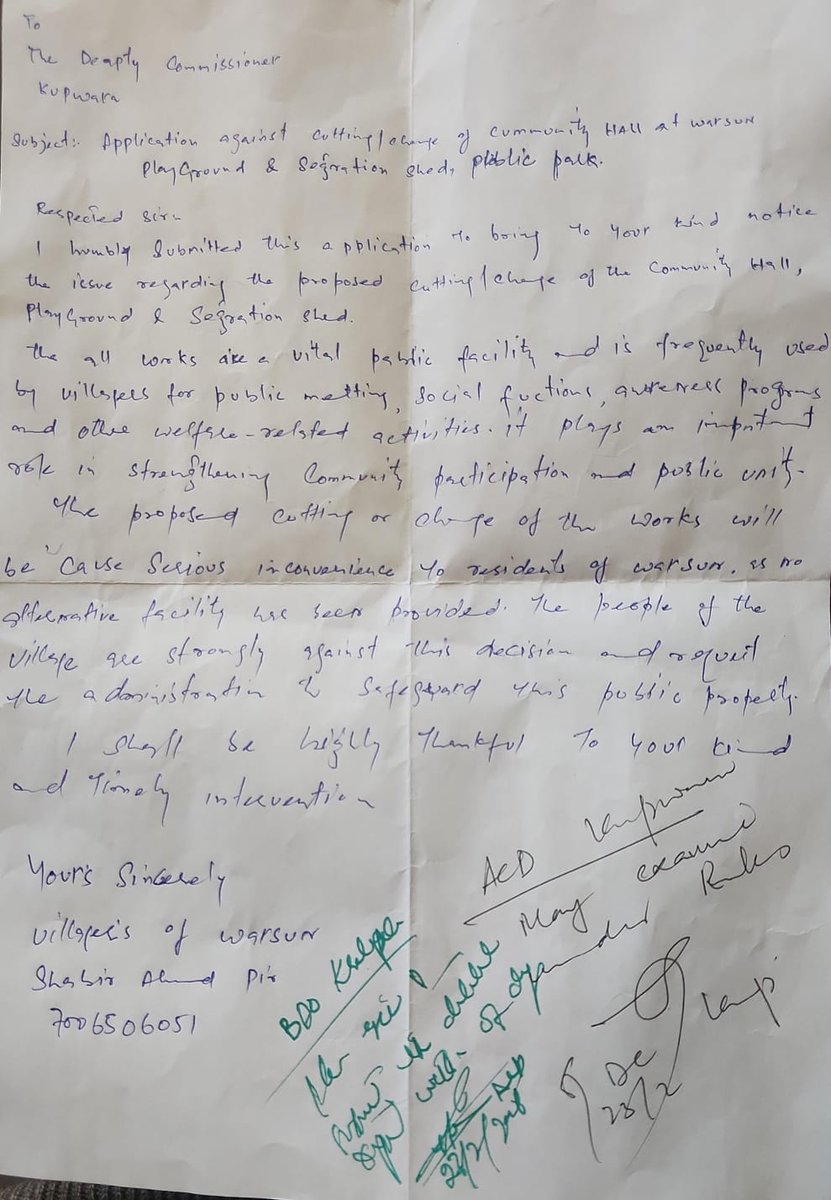 To
The Deapty Commissioner
Kupwara
Subject:- Application against cutting/change of cummunity HAll at warsun
PlayGround & Segration shed, public park.
Respected sir
I humbly submitted this application to bring to your kind notice
the issue regarding the proposed cutting/change of the Community Hall,
PlayGround & Segration shed.
the all works are a vital public facility and is frequently used
by villages for public metting, social fuctions, awareness programs
and other welfare-related activities. it plays an important
role in strengthening Community participation and public unity.
The proposed cutting or change of the works will
be cause serious inconvenience to residents of warsun. as no
alternative facility has been provided. the people of the
village are strongly against this decision and request
the administration to safeguard this public property.
I shall be highly thankful to your kind
and timely intervention
Your's Sincerely
villagers of warsun
Shabir Ahmad Pir
7006506051
ACD Kupwara
May examine
Rules
DC
23/2
BDO